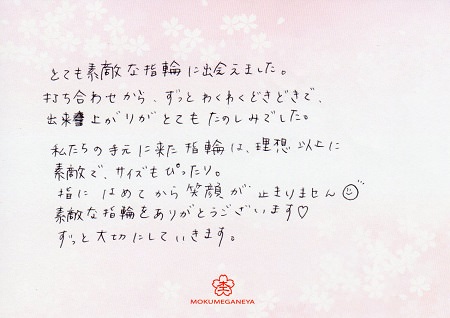 とても素敵な指輪に出会えました。
打ち合わせから、ずっとわくわくどきどきで、
出来上がりがとてもたのしみでした。
私たちの手元に来た指輪は、理想以上に
素敵で、サイズもぴったり。
指にはめてから笑顔が止まりません
素敵な指輪をありがとうございます♡
ずっと大切にしていきます。
MOKUMEGANEYA